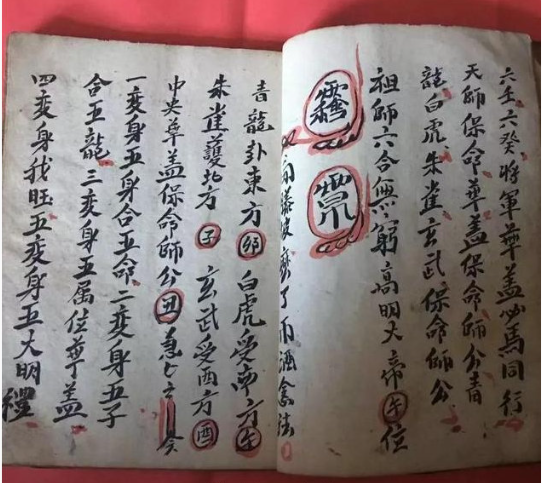 六壬六癸將軍華盖必馬同行
天師保命華盖保命師公青
龍白虎朱雀玄武保命師公
祖師六合無窮高明大帝午位
青龍卦東方卯白虎受南方午
朱雀護北方子玄武受西方酉
中央華盖保命師公丑急
一変身五身合五命二変身五子
合五龍三変身五属位華盖
四変身我旺五変身五大明禮